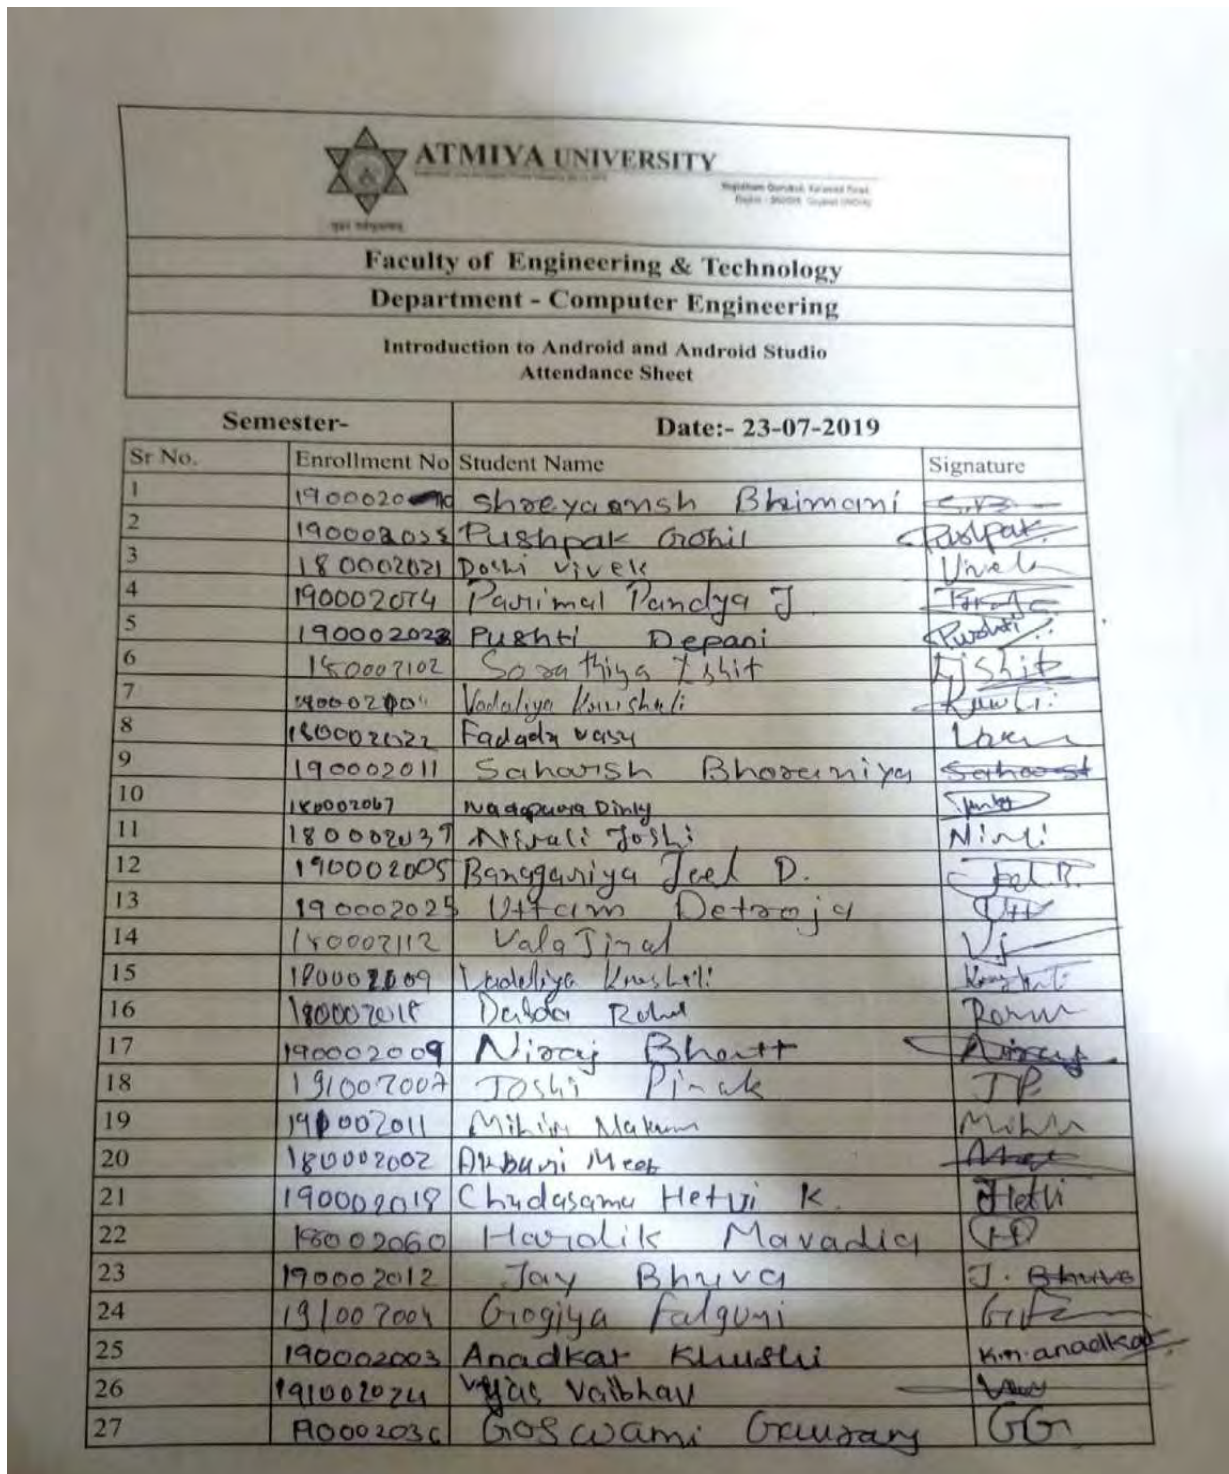 ATMIYA UNIVERSITY
Faculty of Engineering & Technology
Department - Computer Engineering
Introduction to Android and Android Studio
Attendance Sheet
Semester- Date:- 23-07-2019
Sr No. Enrollment No Student Name Signature
1 Shreyaansh Bhimani S.B
2 Pushpak Gohil Pushpak
3 180002021 Doshi Vivek Vivek
4 190002074 Parimal Pandya J.
5 190002023 Pushti Depani Pushti
6 180002102 Sorathiya Ishit Ishit
7 Vadaliya
8 180002022 Fadadu vasu
9 190002011 Saharsh Bhoraniya Saharsh
10 180002067 Dinky
11 180002037 Nirali Joshi
12 190002005 Banggariya Jeel D.
13 190002025 Uttam Detroja
14 180002112 Vala Jinal VJ
15
16 180002018 Rahul
17 190002009 Niraj Bhatt Niraj
18 191002007 Joshi Pinak JP.
19 191002011 Mihir Makum Mihir
20 180002002 Akbari Meet
21 190002018 Chudasama Hetvi K. Hetvi
22 180002060 Hardik Mavadia
23 190002012 Jay Bhuva J. Bhuva
24 191002004 Gogiya Falguni
25 190002003 Anadkat Khushi K.M. anadkat
26 191002024 Vyas Vaibhav
27 Goswami Gaurang GG